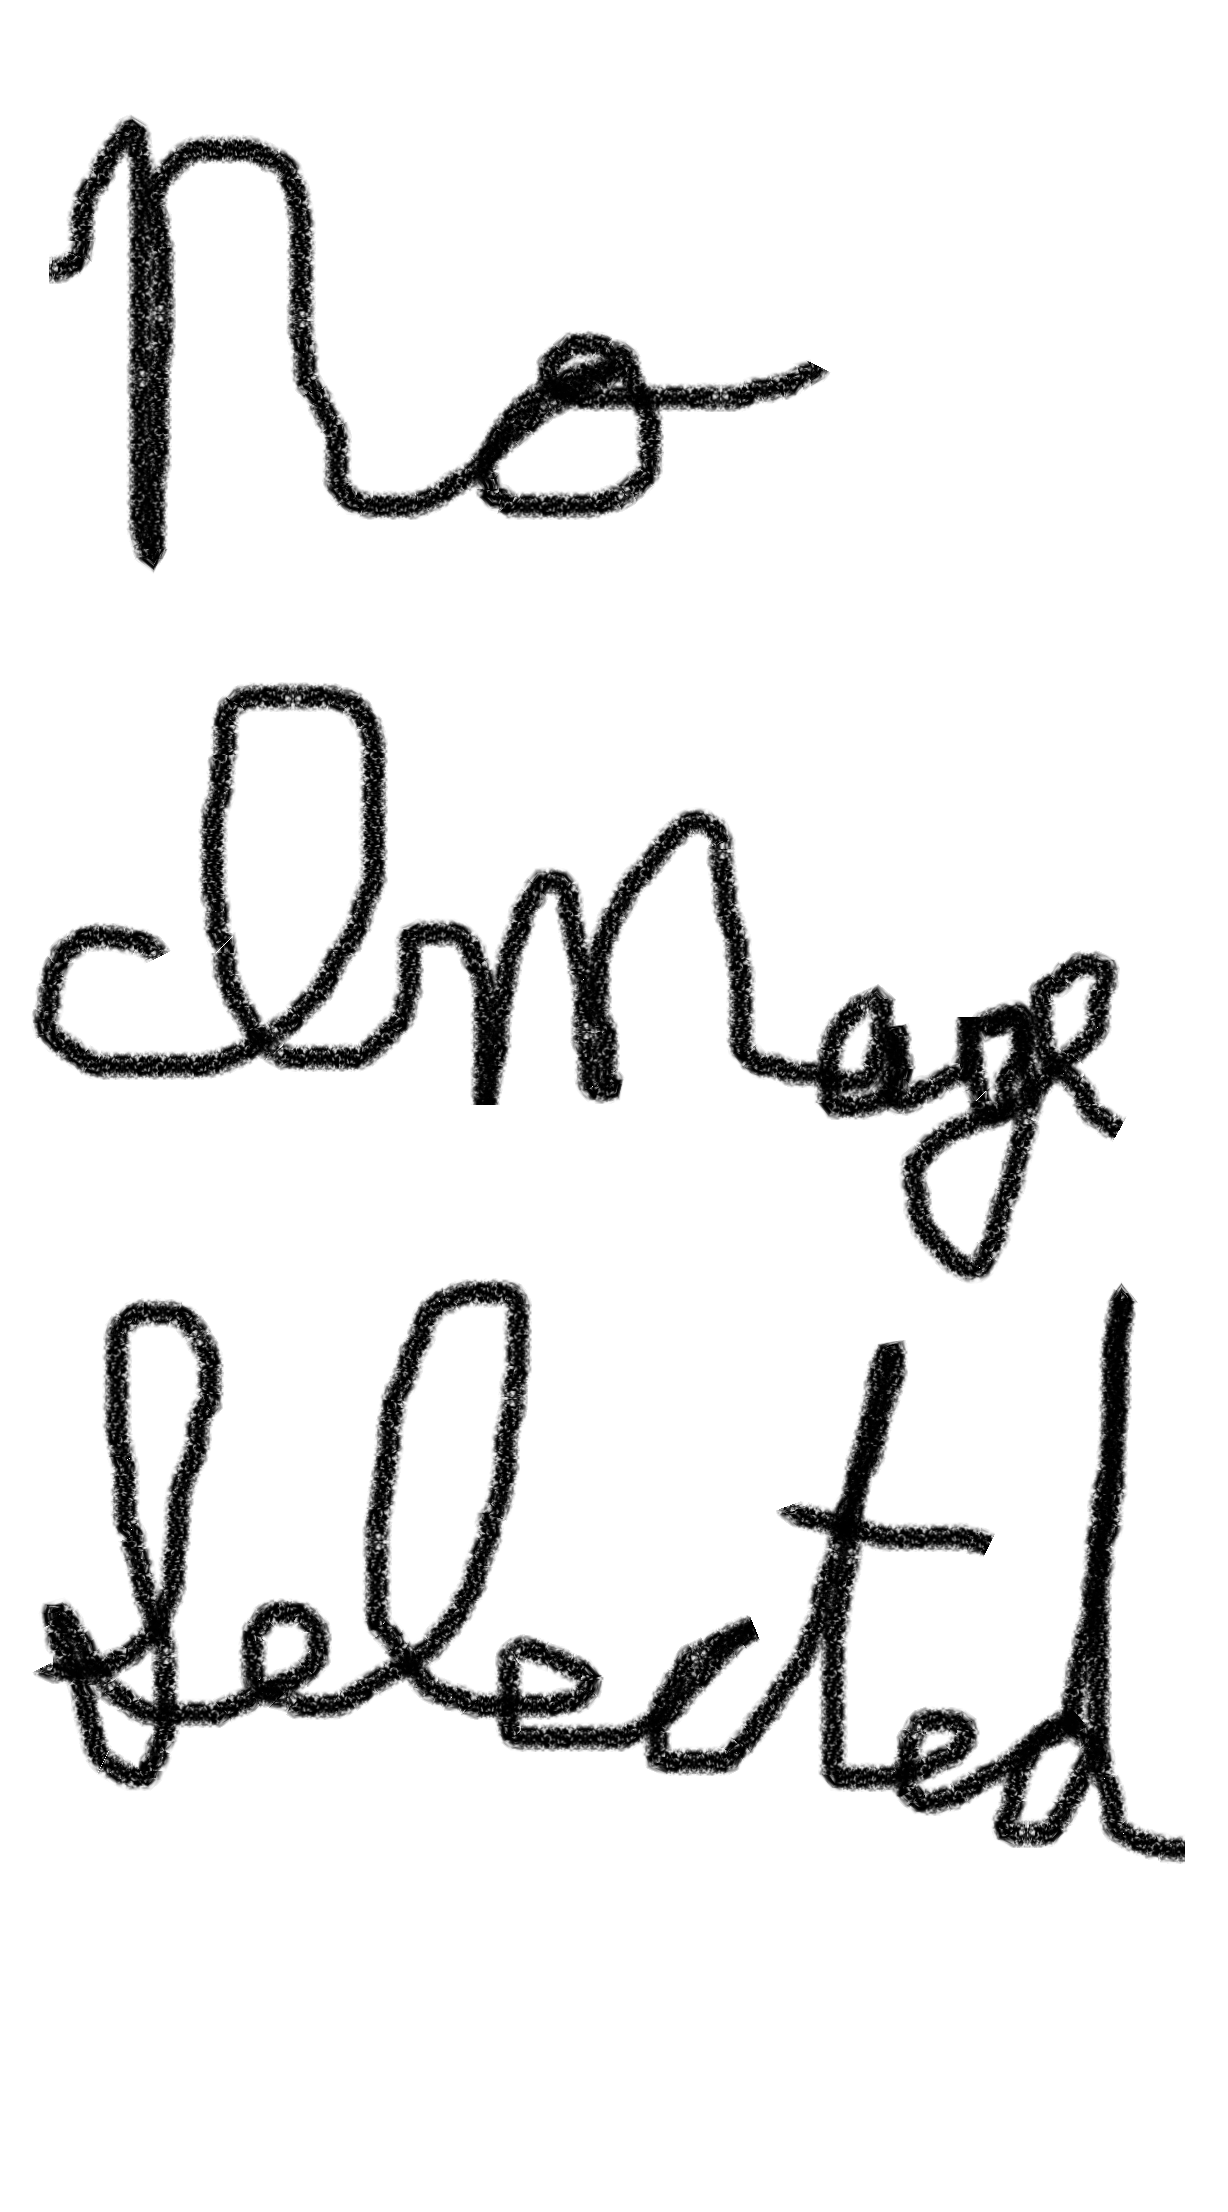 No
Image
Selected